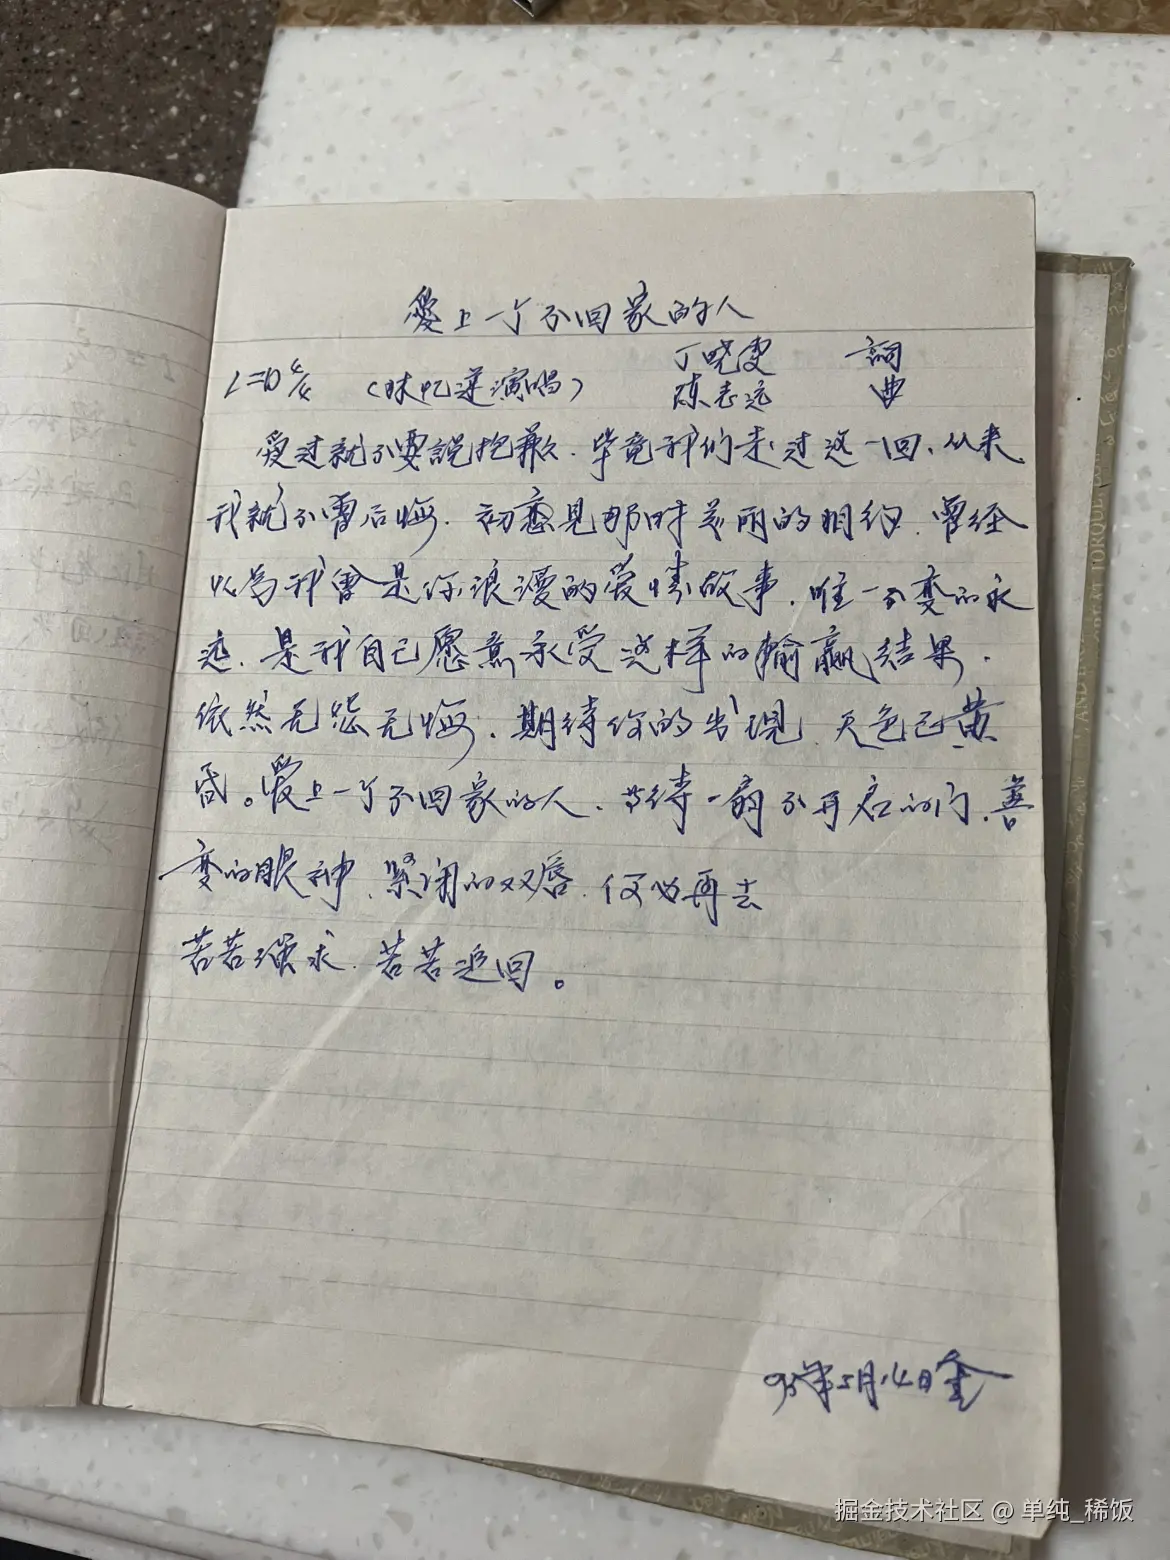 爱上一个不回家的人
1=D 4/4 （林忆莲演唱） 丁晓雯 詞
陈志远 曲
爱过就不要說抱歉．毕竟我们走过这一回．从来
我就不曾后悔．初見那时美丽的相约．曾经
以为我会是你浪漫的爱情故事．唯一不变的永
远．是我自己愿意承受这样的输赢结果．
依然无怨无悔．期待你的出现．天色已黄
昏。爱上一个不回家的人．等待一扇不再启的门．善
变的眼神．紧闭的双唇．何必再去
苦苦强求．苦苦追回。
95年5月14日
掘金技术社区 @ 单纯_稀饭